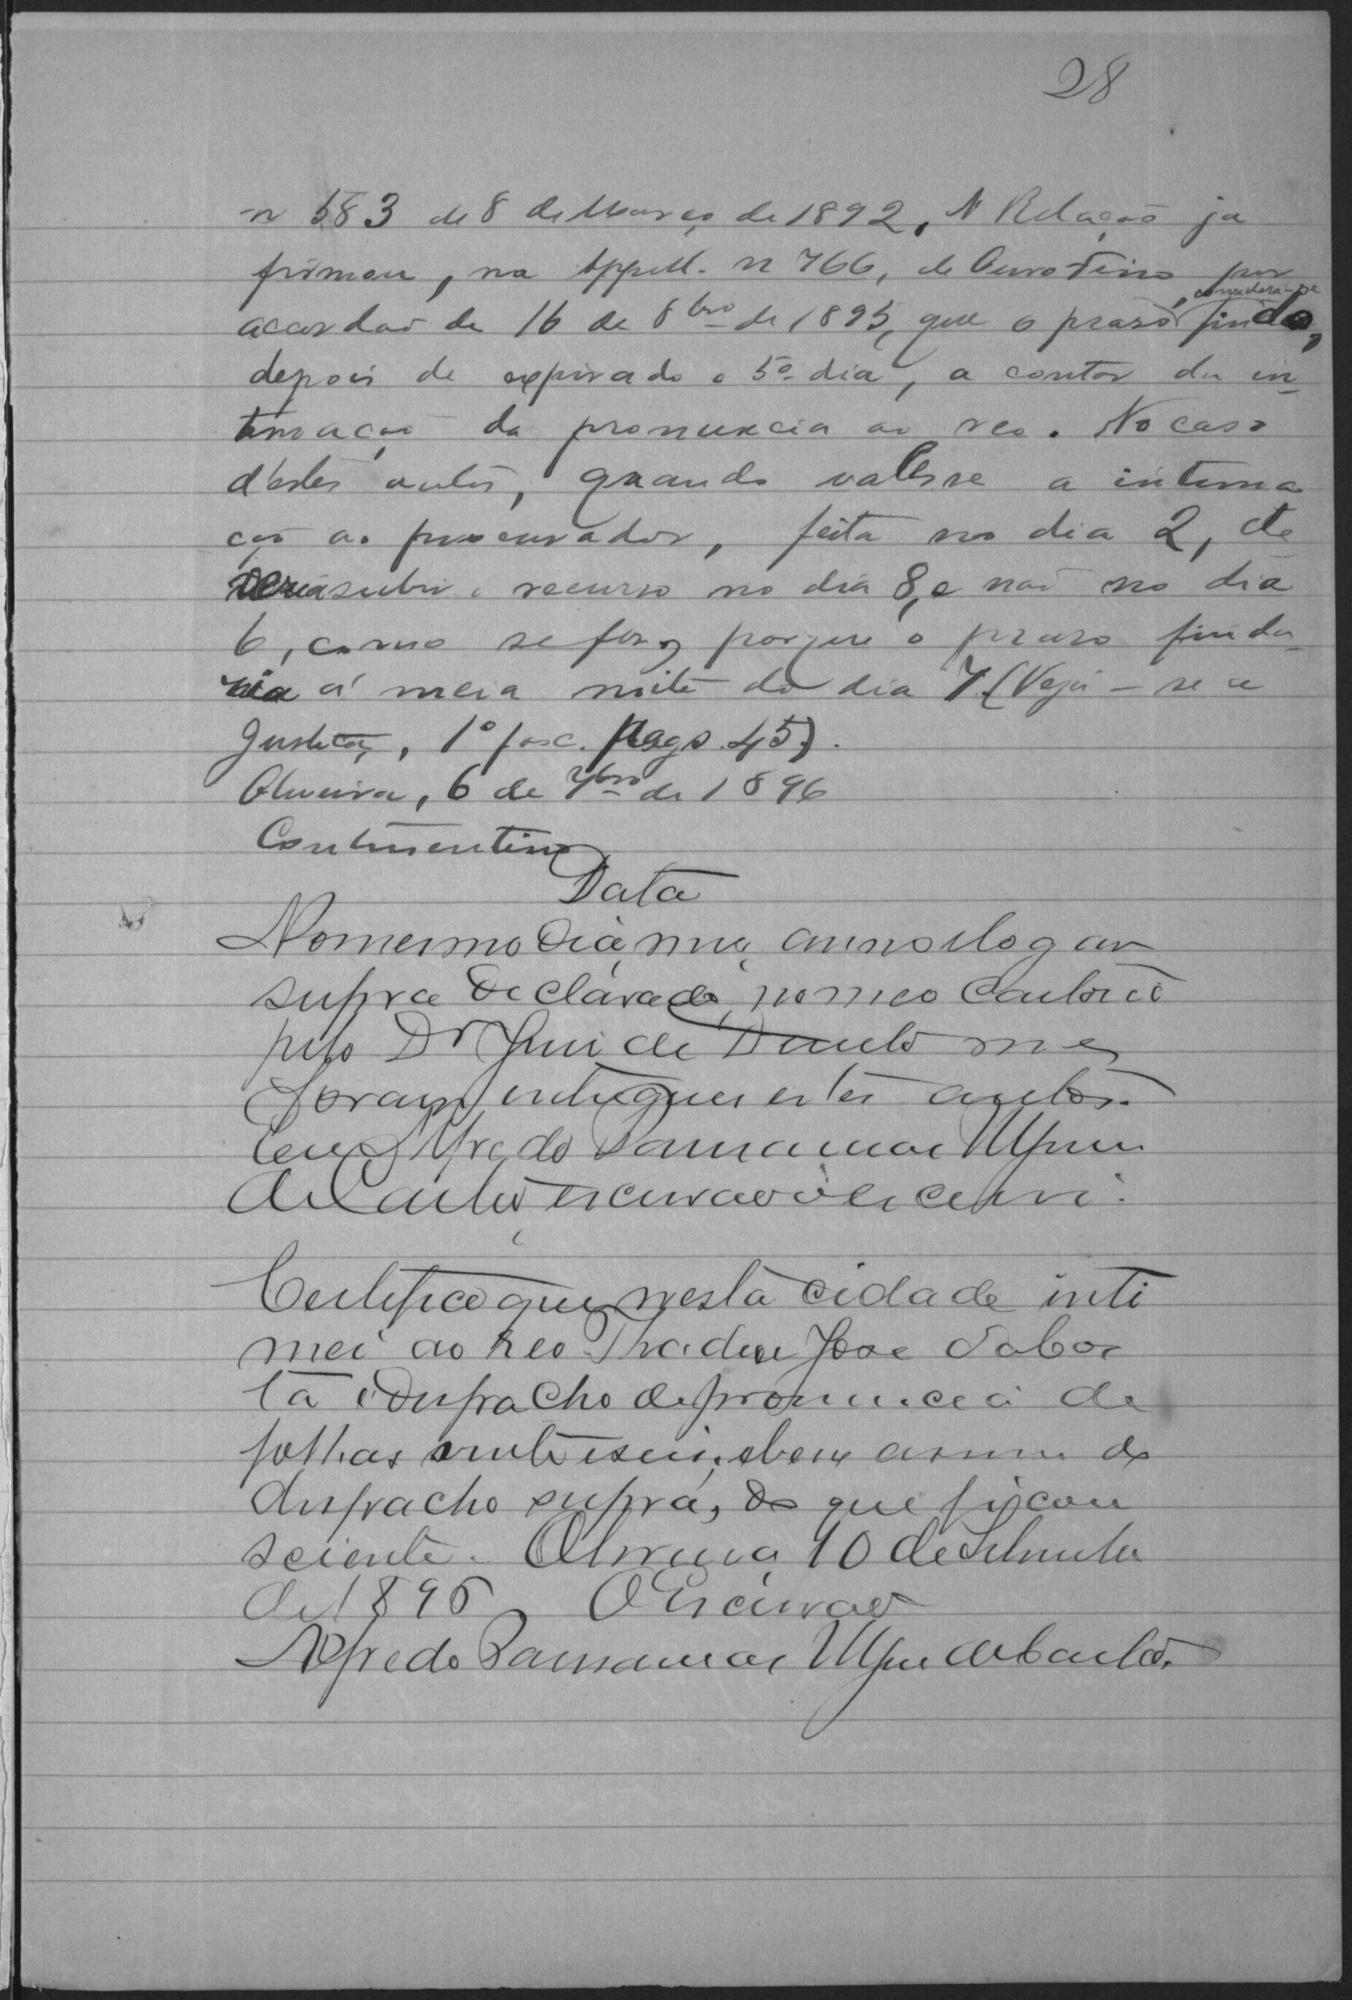 28
n 583 de 8 de Março de 1892, A Relação ja
firmou, na Appell. n 766, de Ouro Fino, por
acordaõ de 16 de 8bro de 1895, que o praso considera-se findo,
depois de expirado o 5º dia, a contar da in-
timação da pronuncia ao reo. No caso
d'estes autos, quando valesse a intima
ção ao procurador, feita no dia 2, de
veria subir o recurso no dia 8, e naõ no dia
6, como se fez, porque o praso finda-
ria á meia noite do dia 7. (Veja-se a
Justiça, 1º fasc. pags. 45).
Oliveira, 6 de 7bro de 1896
Continentino
Data
No mesmo dia, mez, anno e logar
supra declarado, no meo Cartorio
pelo Dr Juiz de Direito me
foram entregues estes autos.
Eu Alfredo
de Castro, escrivaõ o escrevi.
Certifico que nesta cidade inti
mei ao reo Thadeu José
ta o despacho de pronuncia de
folhas vinte e seis, e bem assim do
despacho supra, do que ficou
sciente. Oliveira 10 de Setembro
de 1896 O Escrivaõ
Alfredo de Castro.